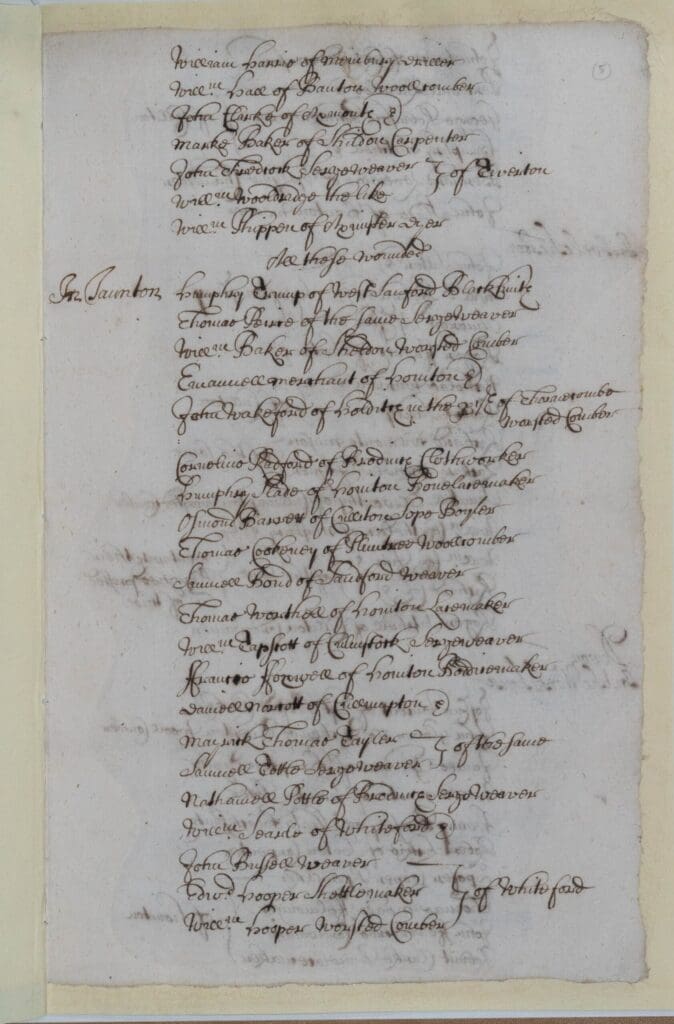 5
William Harris of Membury Fuller
Will:m Hall of Banton Woollcomber
John Clarke of Axmouth
Marke Baker of Shildon Carpenter
John Sergeweaver } of Tiverton
Will:m Wooldridge the like
Will:m Phippen of Axmister Dyer
All these wounded
In Taunton Humphry Trump of West Sanford Blacksmith
Thomas Peirce of the same Sergeweaver
Will:m Baker of Sheldon Worsted Comber
Emanuell Merchant of Honiton
John Wakeford of Holditch in the } of Thornecombe
Worsted Comber
Cornelius Radford of Brodninch Clothworker
Humphry Slade of Honiton Bonelacemaker
Osmond Barrett of Culliton Sope Boyler
Thomas Cockeney of Plimtree Woollcomber
Samuell Bond of Sandford Weaver
Thomas Worthell of Honiton Lacemaker
Will:m Tapscott of Culmstock Sergeweaver
Francis Foxwell of Honiton Boddicemaker
Daniell Norcott of Cullumpton
Mayrick Thomas Tayler } of the same
Samuell Pottle Sergeweaver
Nathaniell Pottle of Brodninch Sergeweaver
Will:m Searle of Whiteford
John Bussell Weaver
Edw:d Hooper Shettlemaker } of Whiteford
Will:m Hooper Worsted Comber